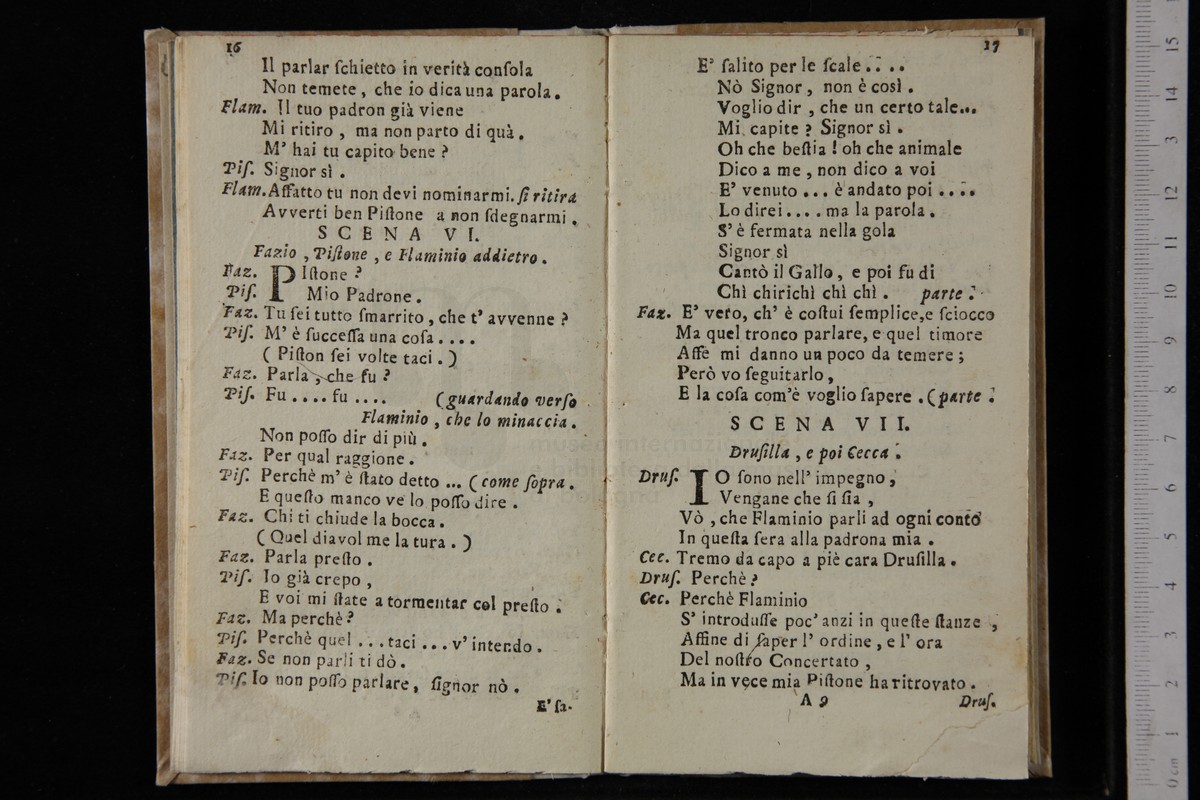 16
Il parlar ſchietto in verità conſola
Non temete, che io dica una parola.
Flam. Il tuo padron già viene
Mi ritiro, ma non parto di quà.
M' hai tu capito bene?
Piſ. Signor sì.
Flam. Affatto tu non devi nominarmi. ſi ritira
Avverti ben Piſtone a non ſdegnarmi.
SCENA VI.
Fazio, Piſtone, e Flaminio addietro.
Faz. PIſtone?
Piſ. Mio Padrone.
Faz. Tu ſei tutto ſmarrito, che t' avvenne?
Piſ. M' è ſucceſſa una coſa....
(Piſton ſei volte taci.)
Faz. Parla, che fu?
Piſ. Fu.... fu.... (guardando verſo
Flaminio, che lo minaccia.
Non poſſo dir di più.
Faz. Per qual raggione.
Piſ. Perchè m' è ſtato detto... (come ſopra.
E queſto manco ve lo poſſo dire.
Faz. Chi ti chiude la bocca.
(Quel diavol me la tura.)
Faz. Parla preſto.
Piſ. Io già crepo,
E voi mi ſtate a tormentar col preſto.
Faz. Ma perchè?
Piſ. Perchè quel... taci... v' intendo.
Faz. Se non parli ti dò.
Piſ. Io non poſſo parlare, ſignor nò.
E' ſa-
17
E' ſalito per le ſcale....
Nò Signor, non è così.
Voglio dir, che un certo tale...
Mi capite? Signor sì.
Oh che beſtia! oh che animale
Dico a me, non dico a voi
E' venuto... è andato poi....
Lo direi.... ma la parola.
S' è fermata nella gola
Signor sì
Cantò il Gallo, e poi fu di
Chì chirichì chì chì. parte.
Faz. E' vero, ch' è coſtui ſemplice, e ſciocco
Ma quel tronco parlare, e quel timore
Affè mi danno un poco da temere;
Però vo ſeguitarlo,
E la coſa com'è voglio ſapere. (parte.
SCENA VII.
Druſilla, e poi Cecca.
Druſ. IO ſono nell' impegno,
Vengane che ſi ſia,
Vò, che Flaminio parli ad ogni conto
In queſta ſera alla padrona mia.
Cec. Tremo da capo a piè cara Druſilla.
Druſ. Perchè?
Cec. Perchè Flaminio
S' introduſſe poc' anzi in queſte ſtanze,
Affine di ſaper l' ordine, e l' ora
Del noſtro Concertato,
Ma in vece mia Piſtone ha ritrovato.
A 9
Druſ.